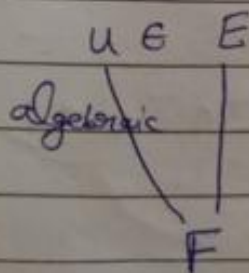 u ∈ E
algebraic
F